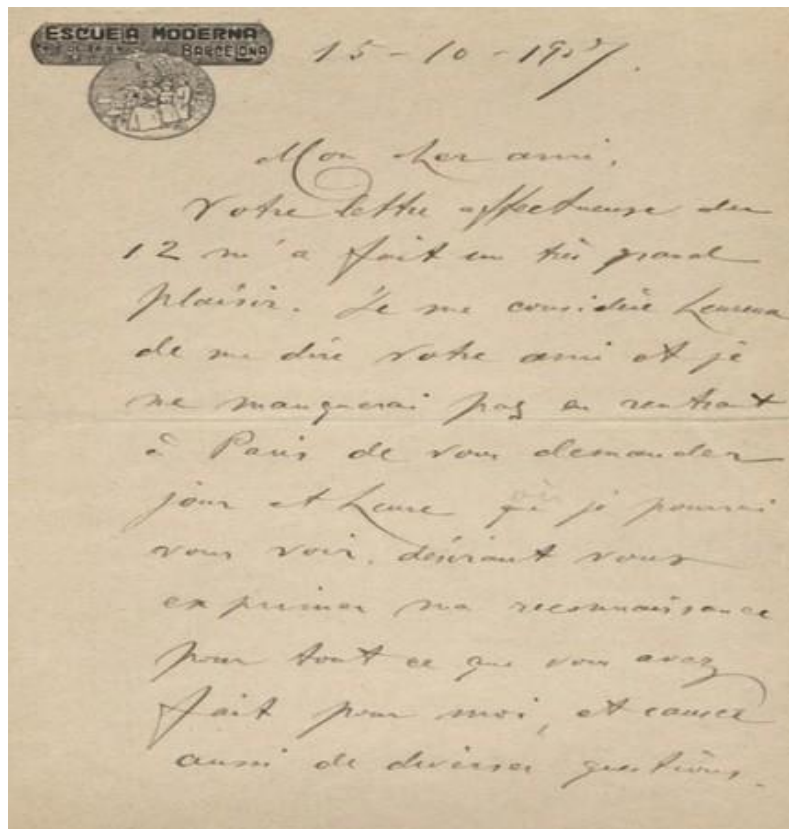 ESCUELA MODERNA
BARCELONA
15-10-1907.
Mon cher ami,
Votre lettre affectueuse du
12 m'a fait un très grand
plaisir. Je me considère heureux
de me dire votre ami et je
ne manquerai pas en rentrant
à Paris de vous demander
jour et heure où je pourrai
vous voir, désirant vous
exprimer ma reconnaissance
pour tout ce que vous avez
fait pour moi, et causer
aussi de diverses questions.